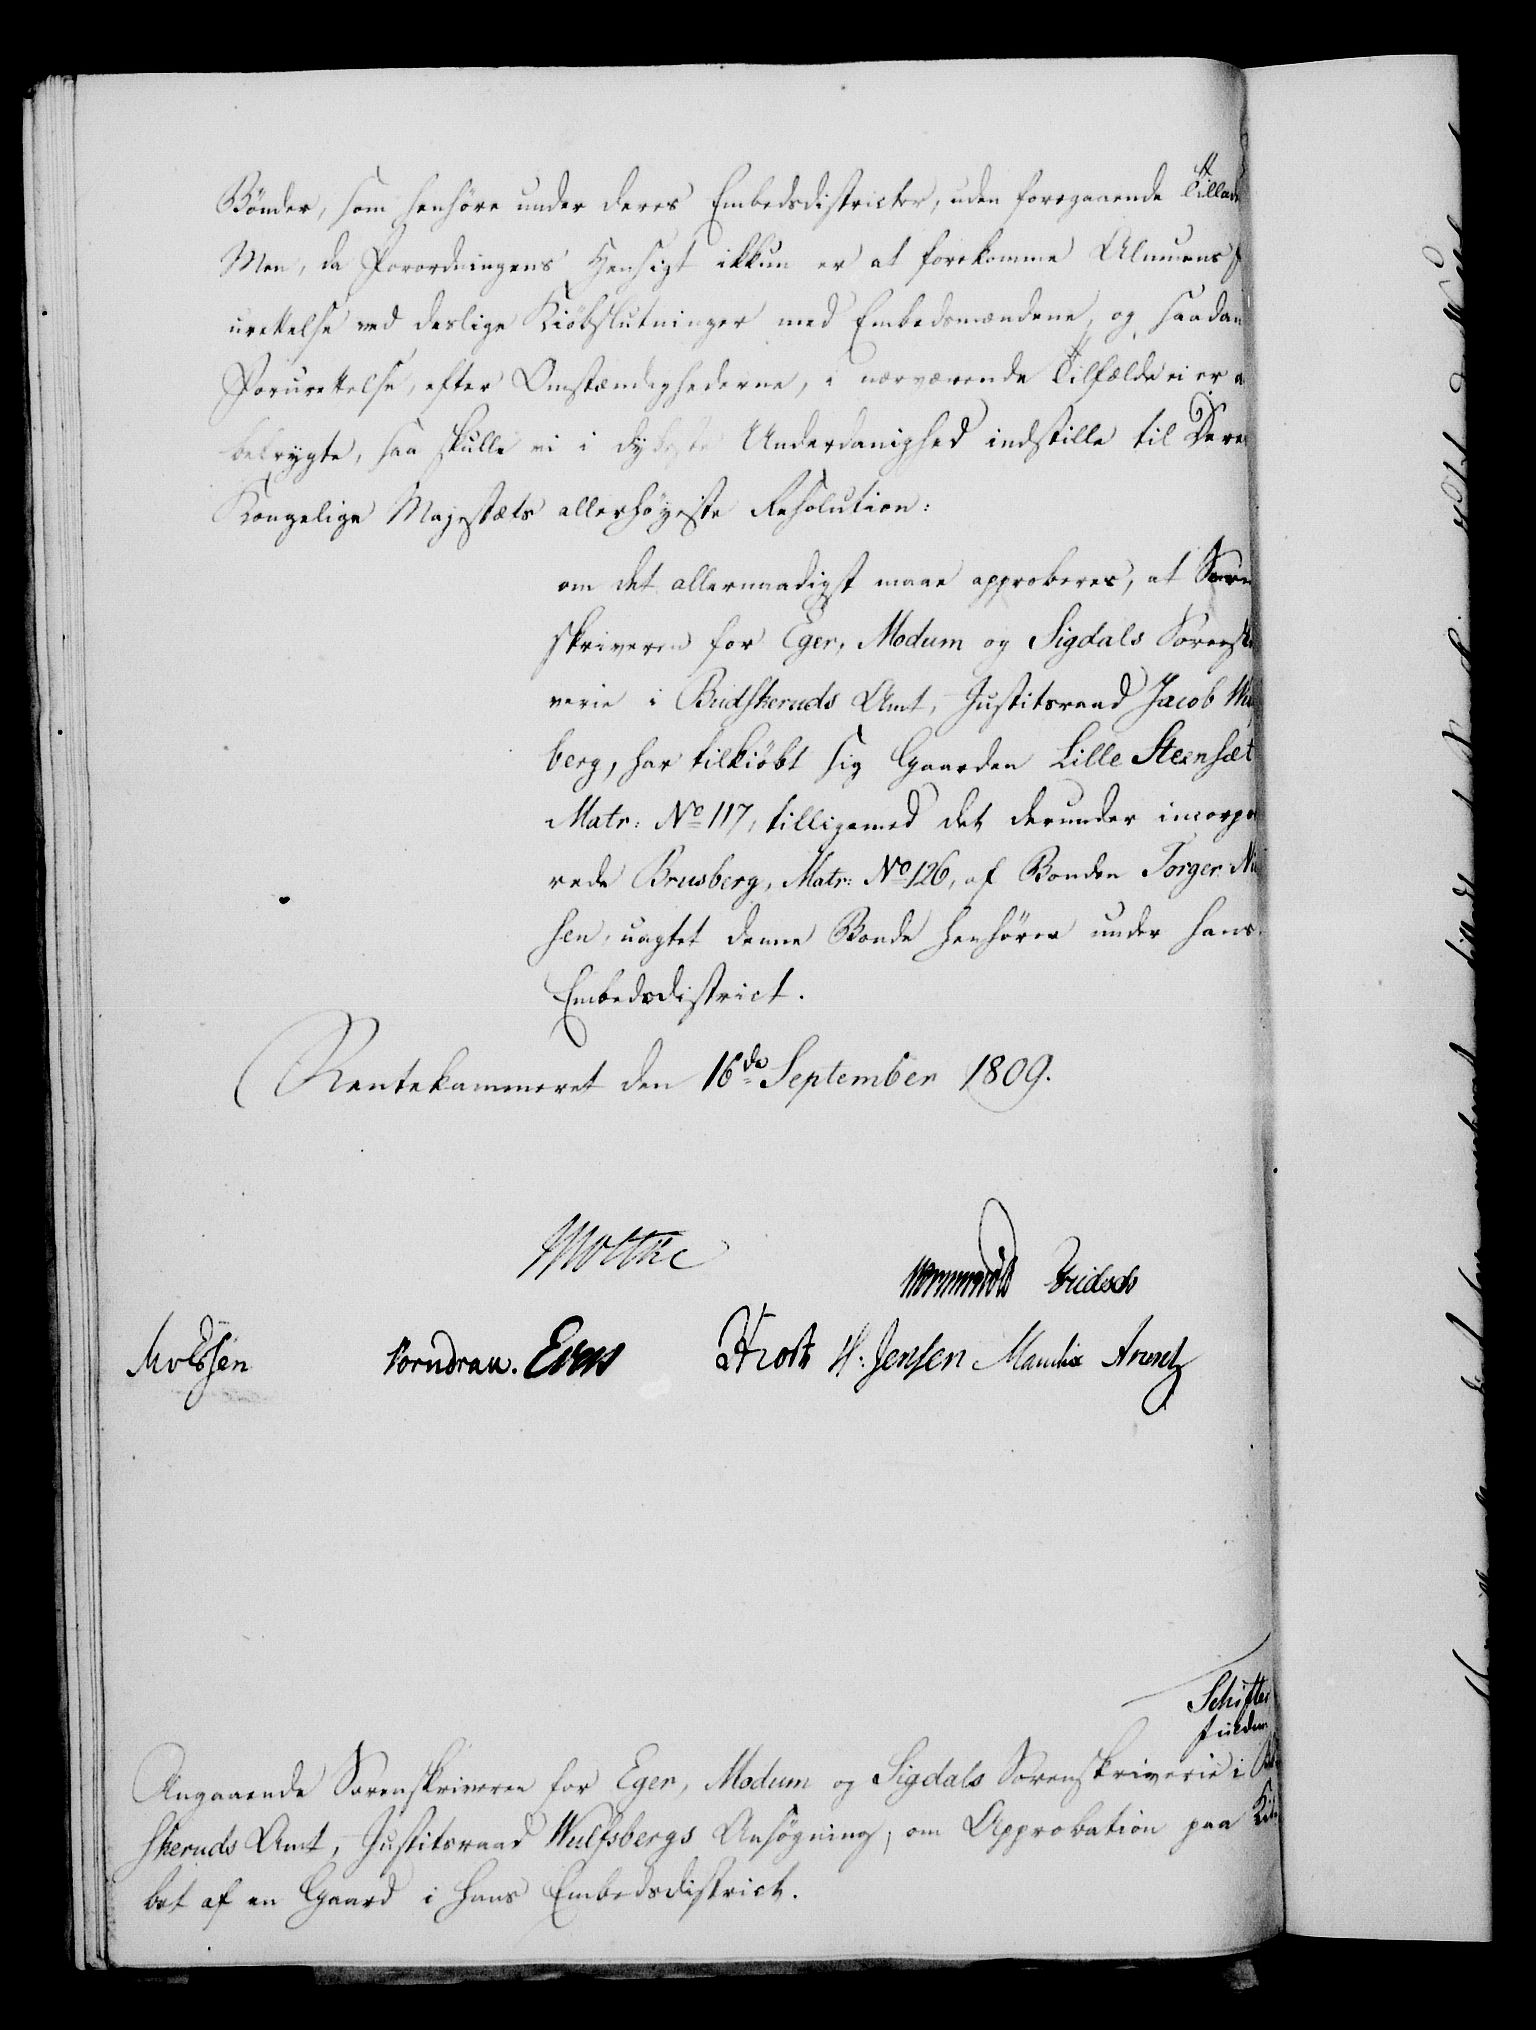 Bönder, som henhöre under deres Embedsdistricter, uden foregaaende
Men, da Forordningens Hensigt ikkun er at forekomme Almuens
urettelse ved deslige Kiöbslutninger med Embedsmændene, og saadan
Forurettelse, efter Omstændighederne, i nærværende Tilfælde ei er
befrygte, saa skulle vi i dybeste Underdanighed indstille til Deres
Kongelige Majestæts allerhöyeste Resolution:
om det allernaadigst maae approberes, at Soren
skriveren for Eger, Modum og Sigdals Sorenskri
verie i Budskeruds Amt, Justitsraad Jacob Wulfs
berg, har tilkiöbt sig Gaarden Lille Steensæt
Matr: No 117, tilligemed det derunder incorpo
rede Brusberg, Matr: No 126, af Bonden Torger
sen, uagtet denne Bonde henhörer under hans
Embedsdistrict.
Rentekammeret den 16de September 1809.
Moltke
Wormskiold
Vorndran. Evers H: Jensen Manthe Arentz
Schifter
Angaaende Sorenskriveren for Eger, Modum og Sigdals Sorenskriverie i
skeruds Amt, Justitsraad Wulfsbergs Ansögning, om Approbation paa Kiö
bet af en Gaard i hans Embedsdistrict.